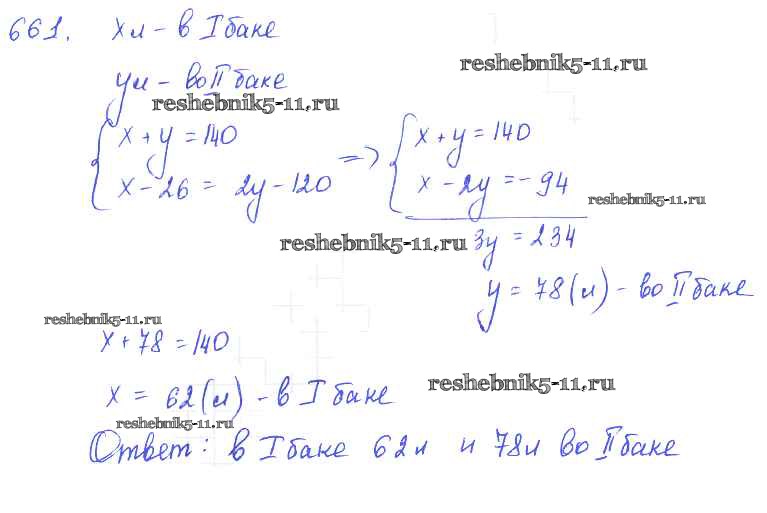 661. x л - в I баке
reshebnik5-11.ru
y л - во II баке
reshebnik5-11.ru
{ x + y = 140
x - 26 = 2y - 120
=> { x + y = 140
x - 2y = - 94
reshebnik5-11.ru
reshebnik5-11.ru
3y = 234
y = 78 (л) - во II баке
reshebnik5-11.ru
x + 78 = 140
x = 62 (л) - в I баке
reshebnik5-11.ru
reshebnik5-11.ru
Ответ: в I баке 62 л и 78 л во II баке